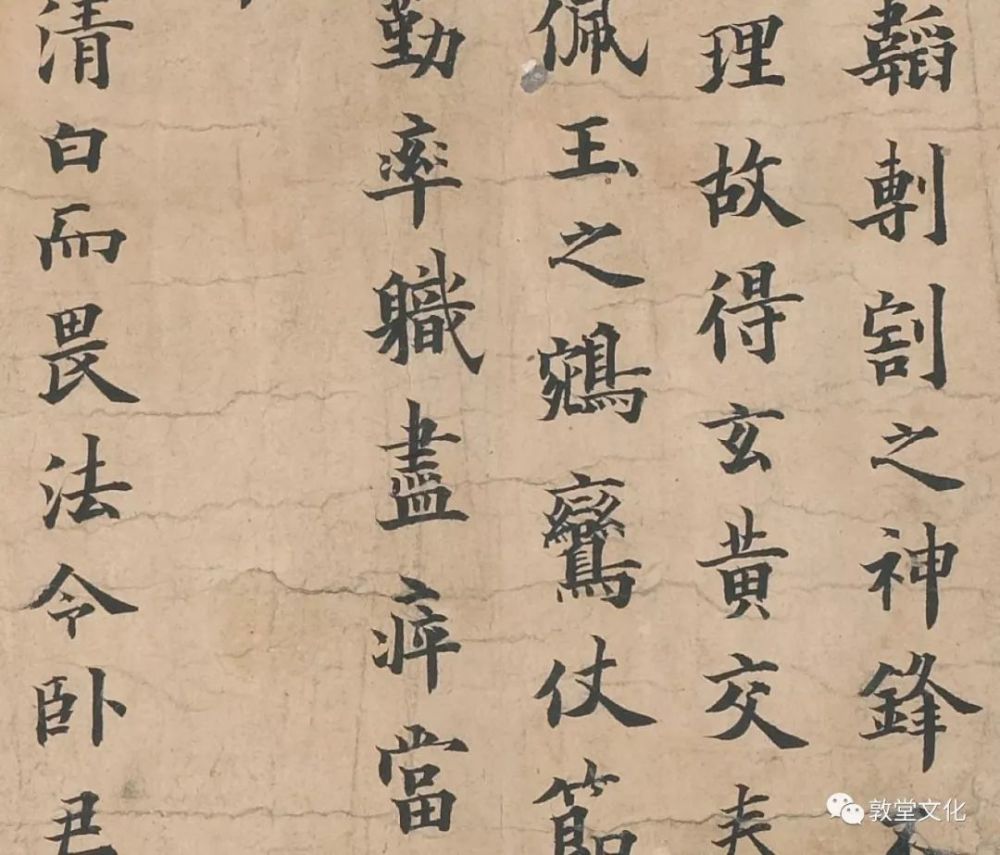 韜剸割之神鋒不
理故得玄黃交
佩玉之鵷鸞仗節
勤率職盡瘁當
清白而畏法令卧
敦堂文化